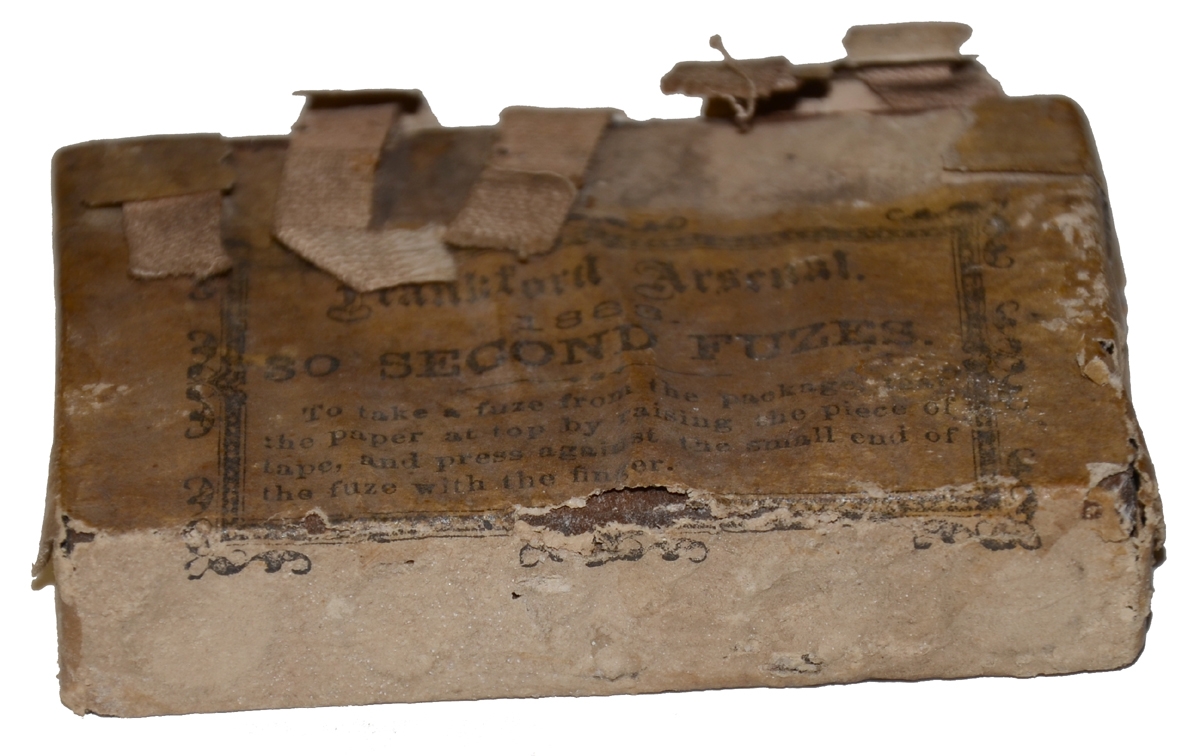 Frankford Arsenal.
30 SECOND FUZES.
To take a fuze from the package, tear
the paper at top by raising the piece of
tape, and press against the small end of
the fuze with the finger.